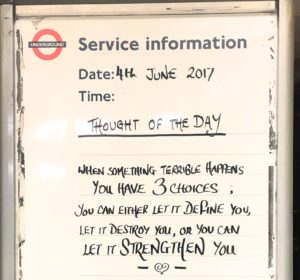 UNDERGROUND
Service information
Date: 4th JUNE 2017
Time:
THOUGHT OF THE DAY
WHEN SOMETHING TERRIBLE HAPPENS
YOU HAVE 3 CHOICES;
YOU CAN EITHER LET IT DEFINE YOU,
LET IT DESTROY YOU, OR YOU CAN
LET IT STRENGTHEN YOU